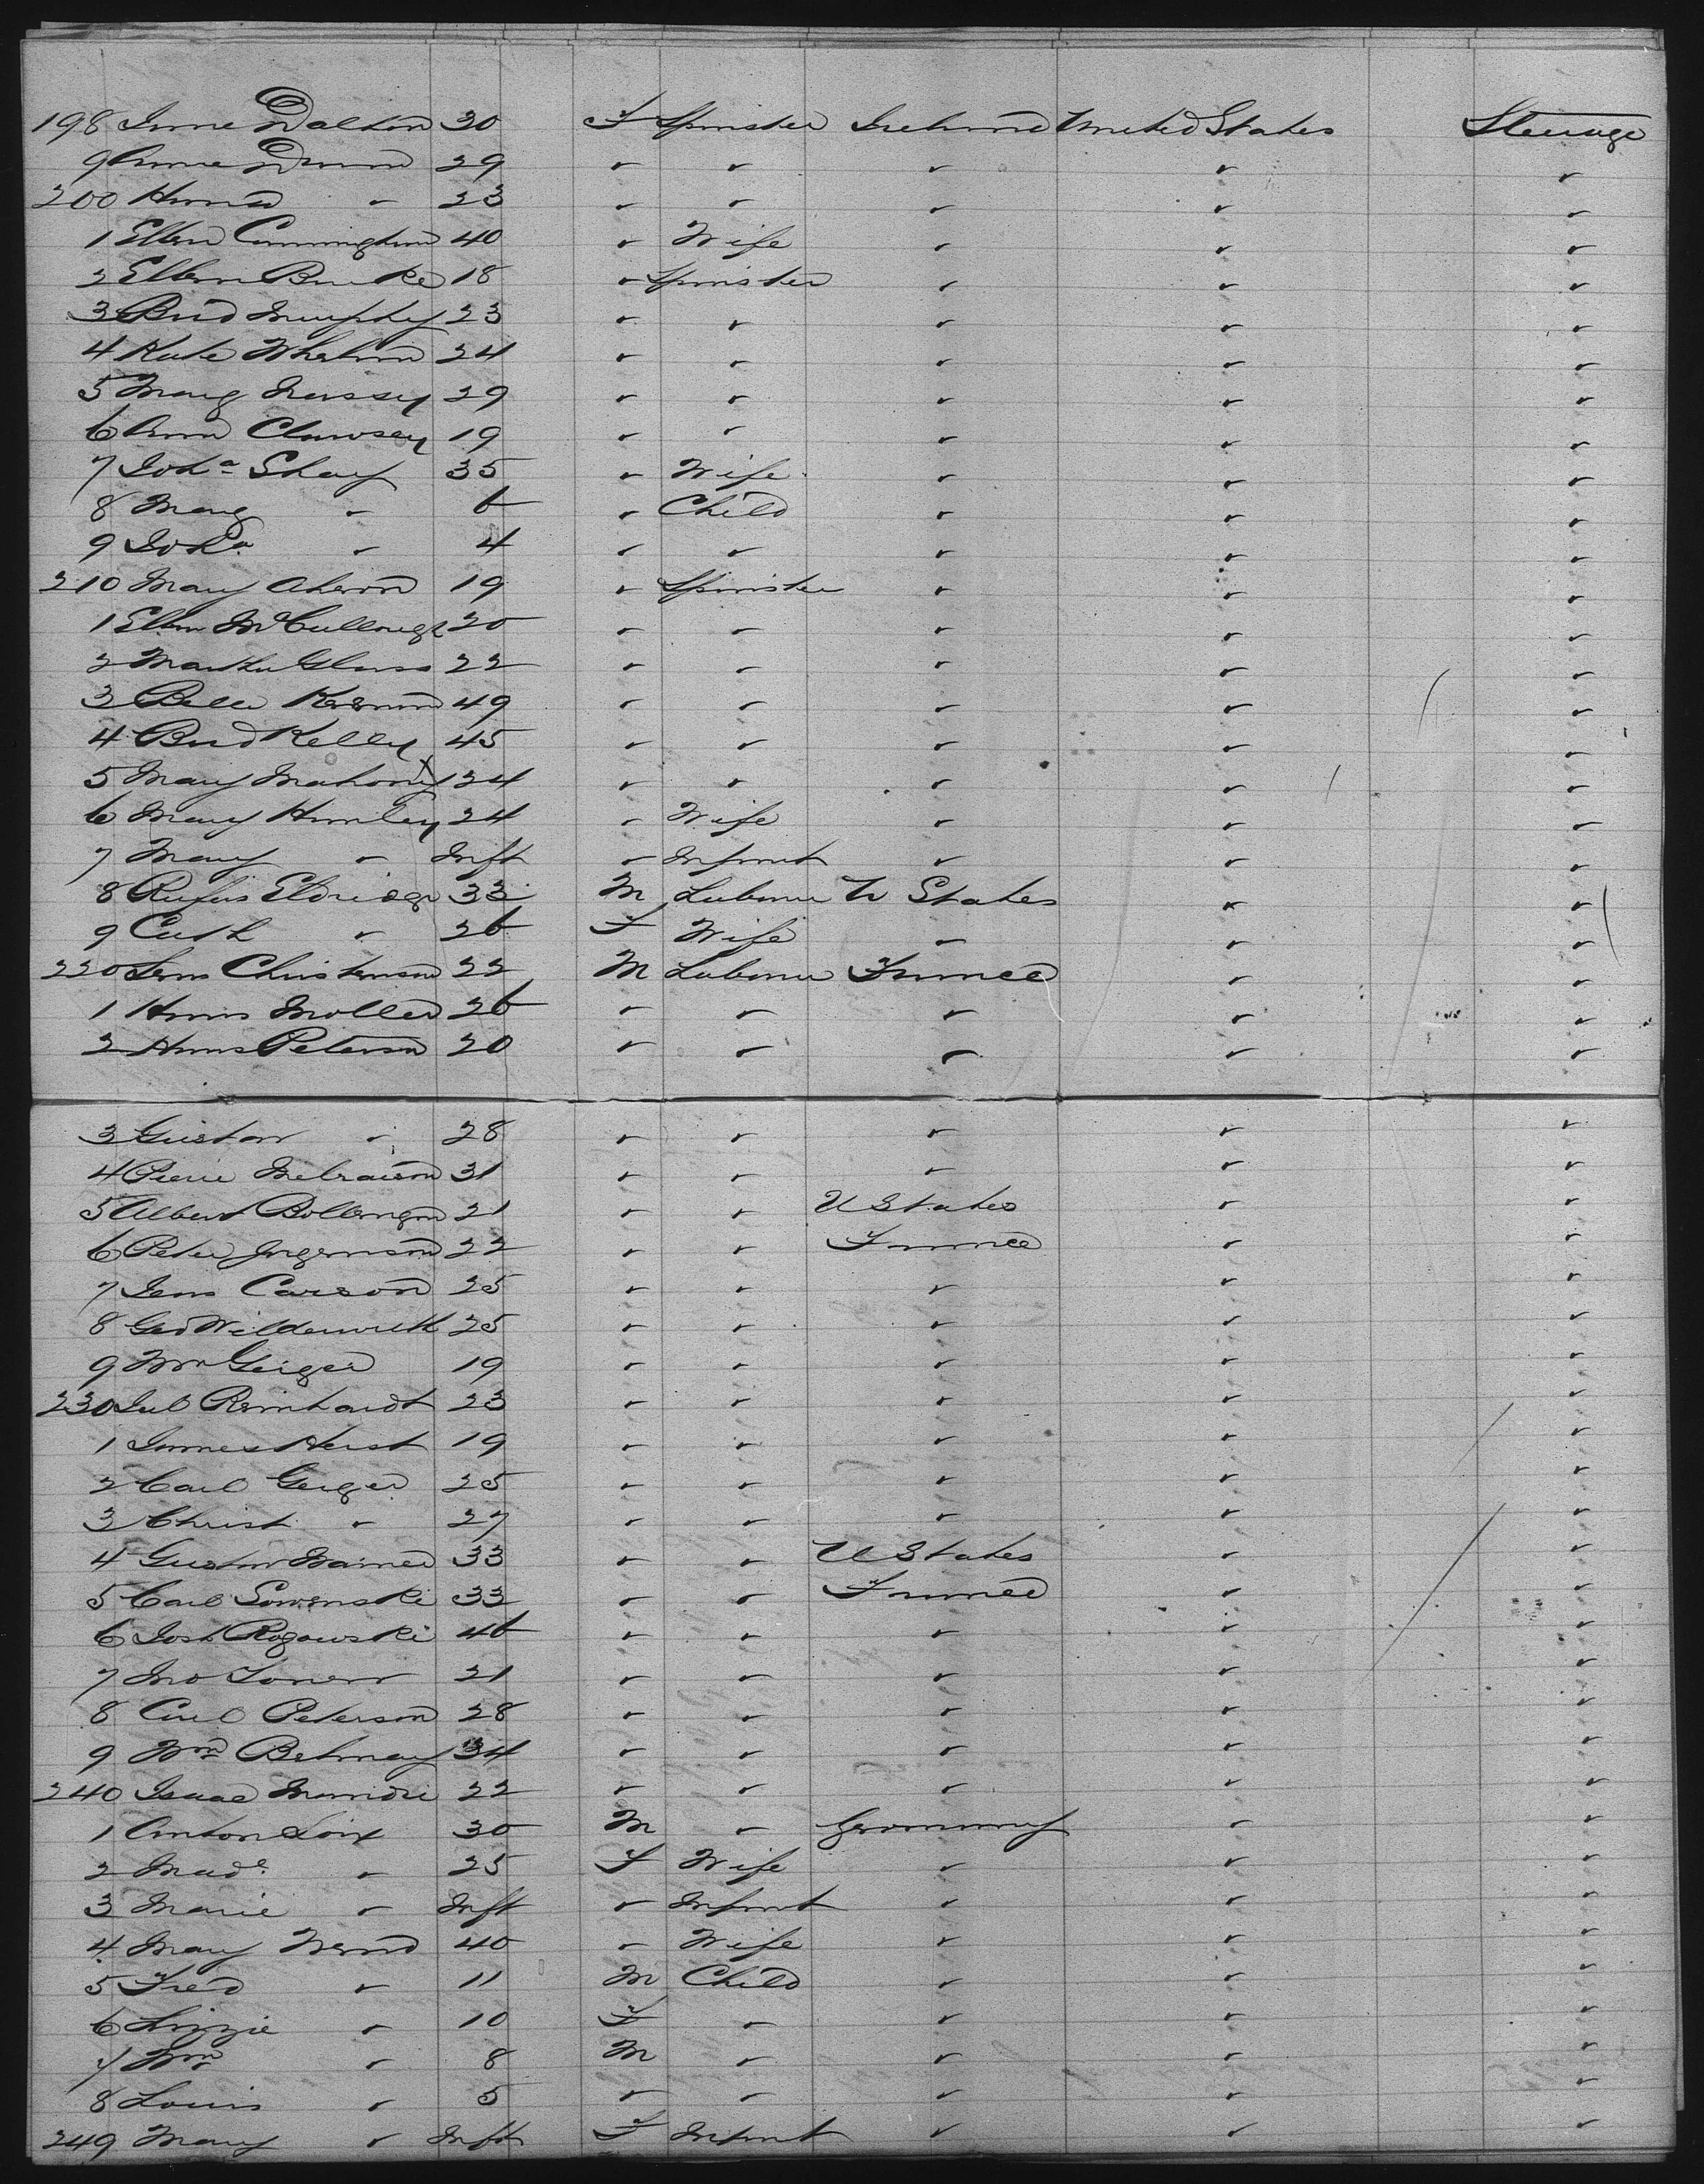 198 Jane Dalton 30 F Spinster Ireland United States Steerage
9 Anne Dunn 29 " " " " "
200 Hanna " 23 " " " " "
1 Ellen Cunningham 40 " Wife " " "
2 Ellen Burke 18 " Spinster " " "
3 Brid Murphy 23 " " " " "
4 Kate Whelan 24 " " " " "
5 Marg 29 " " " " "
6 Ann Clawsey 19 " " " " "
7 Joha Shay 35 " Wife " " "
8 Marg " 6 " Child " " "
9 Joha " 4 " " " " "
210 Mary Ahern 19 " Spinster " " "
1 Ellen McCullough 20 " " " " "
2 Martha Glass 22 " " " " "
3 Bella 49 " " " " "
4 Brid Kelly 45 " " " " "
5 Mary Mahony 24 " " " " "
6 Mary Hanley 24 " Wife " " "
7 Mary " Inft " Infant " " "
8 Rufus Eldridge 33 M Labourer U States " "
9 Cath " 26 F Wife " " "
220 Jens Christensen 22 M Labourer France " "
1 Hans Moller 26 " " " " "
2 Hans Peterson 20 " " " " "
3 Gustav " 28 " " " " "
4 Pierre 31 " " " " "
5 Albert 21 " " U States " "
6 Peter Jorgenson 22 " " France " "
7 Jens Carson 25 " " " " "
8 Geo 25 " " " " "
9 Wm Geiger 19 " " " " "
230 Jul Reinhardt 23 " " " " "
1 James Herst 19 " " " " "
2 Carl Geiger 25 " " " " "
3 Christ " 27 " " " " "
4 Gustav 33 " " U States " "
5 Carl 33 " " France " "
6 Josh Rogowski 46 " " " " "
7 Jno 21 " " " " "
8 Carl Peterson 28 " " " " "
9 Wm 34 " " " " "
240 Isaac 22 " " " " "
1 Anton Loix 30 M " Germany " "
2 Made " 25 F Wife " " "
3 Marie " Inft " Infant " " "
4 Mary 40 " Wife " " "
5 Fred " 11 M Child " " "
6 Lizzie " 10 F " " " "
7 Wm " 8 M " " " "
8 Louis " 5 " " " " "
249 Mary " Inft F Infant " " "